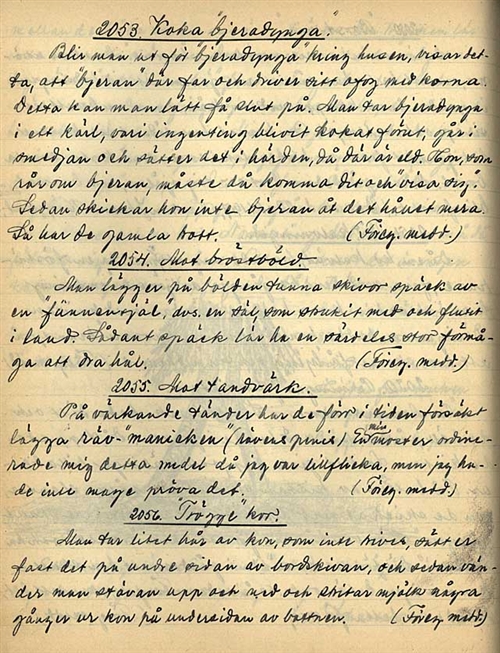 2053. Koka "bjeradynga".
Blir man ut för "bjeradynga" kring husen, visar det-
ta, att "bjeran" där far och driver sitt ofog med korna.
Detta kan man lätt få slut på. Man tar bjeradynga
i ett kärl, vari ingenting blivit kokat förut, går i
smedjan och sätter det i härden, då där är eld. Hon, som
rår om bjeran, måste då komma dit och "visa sig".
Sedan skickar hon inte bjeran åt det hållet mera.
Så har de gamla trott. (Föreg. medd.)
2054. Mot bröstböld.
Man lägger på bölden tunna skivor späck av
en "fännensjäl", dvs. en säl, som strukit med och flutit
i land. Sådant späck lär ha en särdeles stor förmå-
ga att dra hål. (Föreg. medd.)
2055. Mot tandvärk.
På värkande tänder har de förr i tiden försökt
lägga räv-"manicken" (rävens penis) En min moster ordine-
rade mig detta medel då jag var liten flicka, men jag ha-
de inte mage pröva det. (Föreg. medd.)
2056. "Tröyge" kor.
Man tar litet hår av kon, som inte trives, sätter
fast det på undre sidan av bordskivan, och sedan vän-
der man stävan upp och ned och stritar mjölk några
gånger ur kon på undersidan av bottnen. (Föreg. medd.)